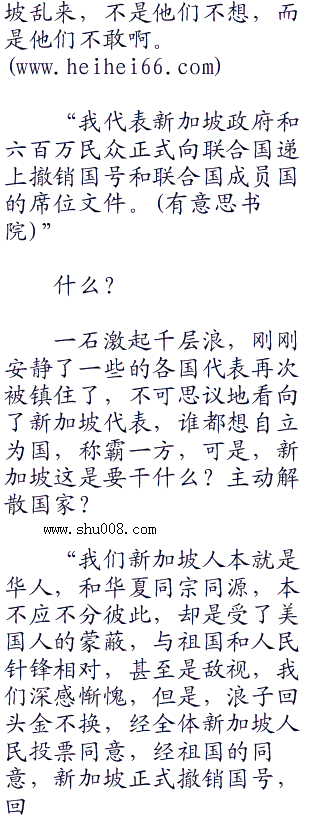 坡乱来，不是他们不想，而
是他们不敢啊。
(www.heihei66.com)
“我代表新加坡政府和
六百万民众正式向联合国递
上撤销国号和联合国成员国
的席位文件。(有意思书
院)”
什么？
一石激起千层浪，刚刚
安静了一些的各国代表再次
被镇住了，不可思议地看向
了新加坡代表，谁都想自立
为国，称霸一方，可是，新
加坡这是要干什么？主动解
散国家？
www.shu008.com
“我们新加坡人本就是
华人，和华夏同宗同源，本
不应不分彼此，却是受了美
国人的蒙蔽，与祖国和人民
针锋相对，甚至是敌视，我
们深感惭愧，但是，浪子回
头金不换，经全体新加坡人
民投票同意，经祖国的同
意，新加坡正式撤销国号，
回